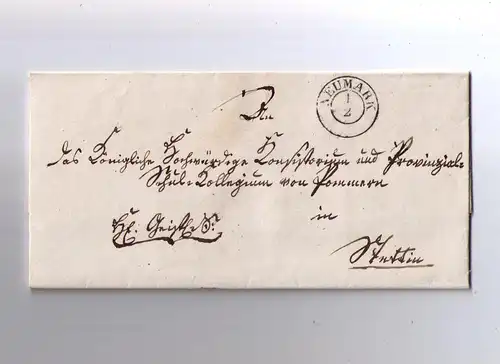 NEUMARK
1
2
An
das Königliche Hochwürdige Konsistorium und Provinzial-
Schul-Kollegium von Pommern
in
Geistl. S.
Stettin